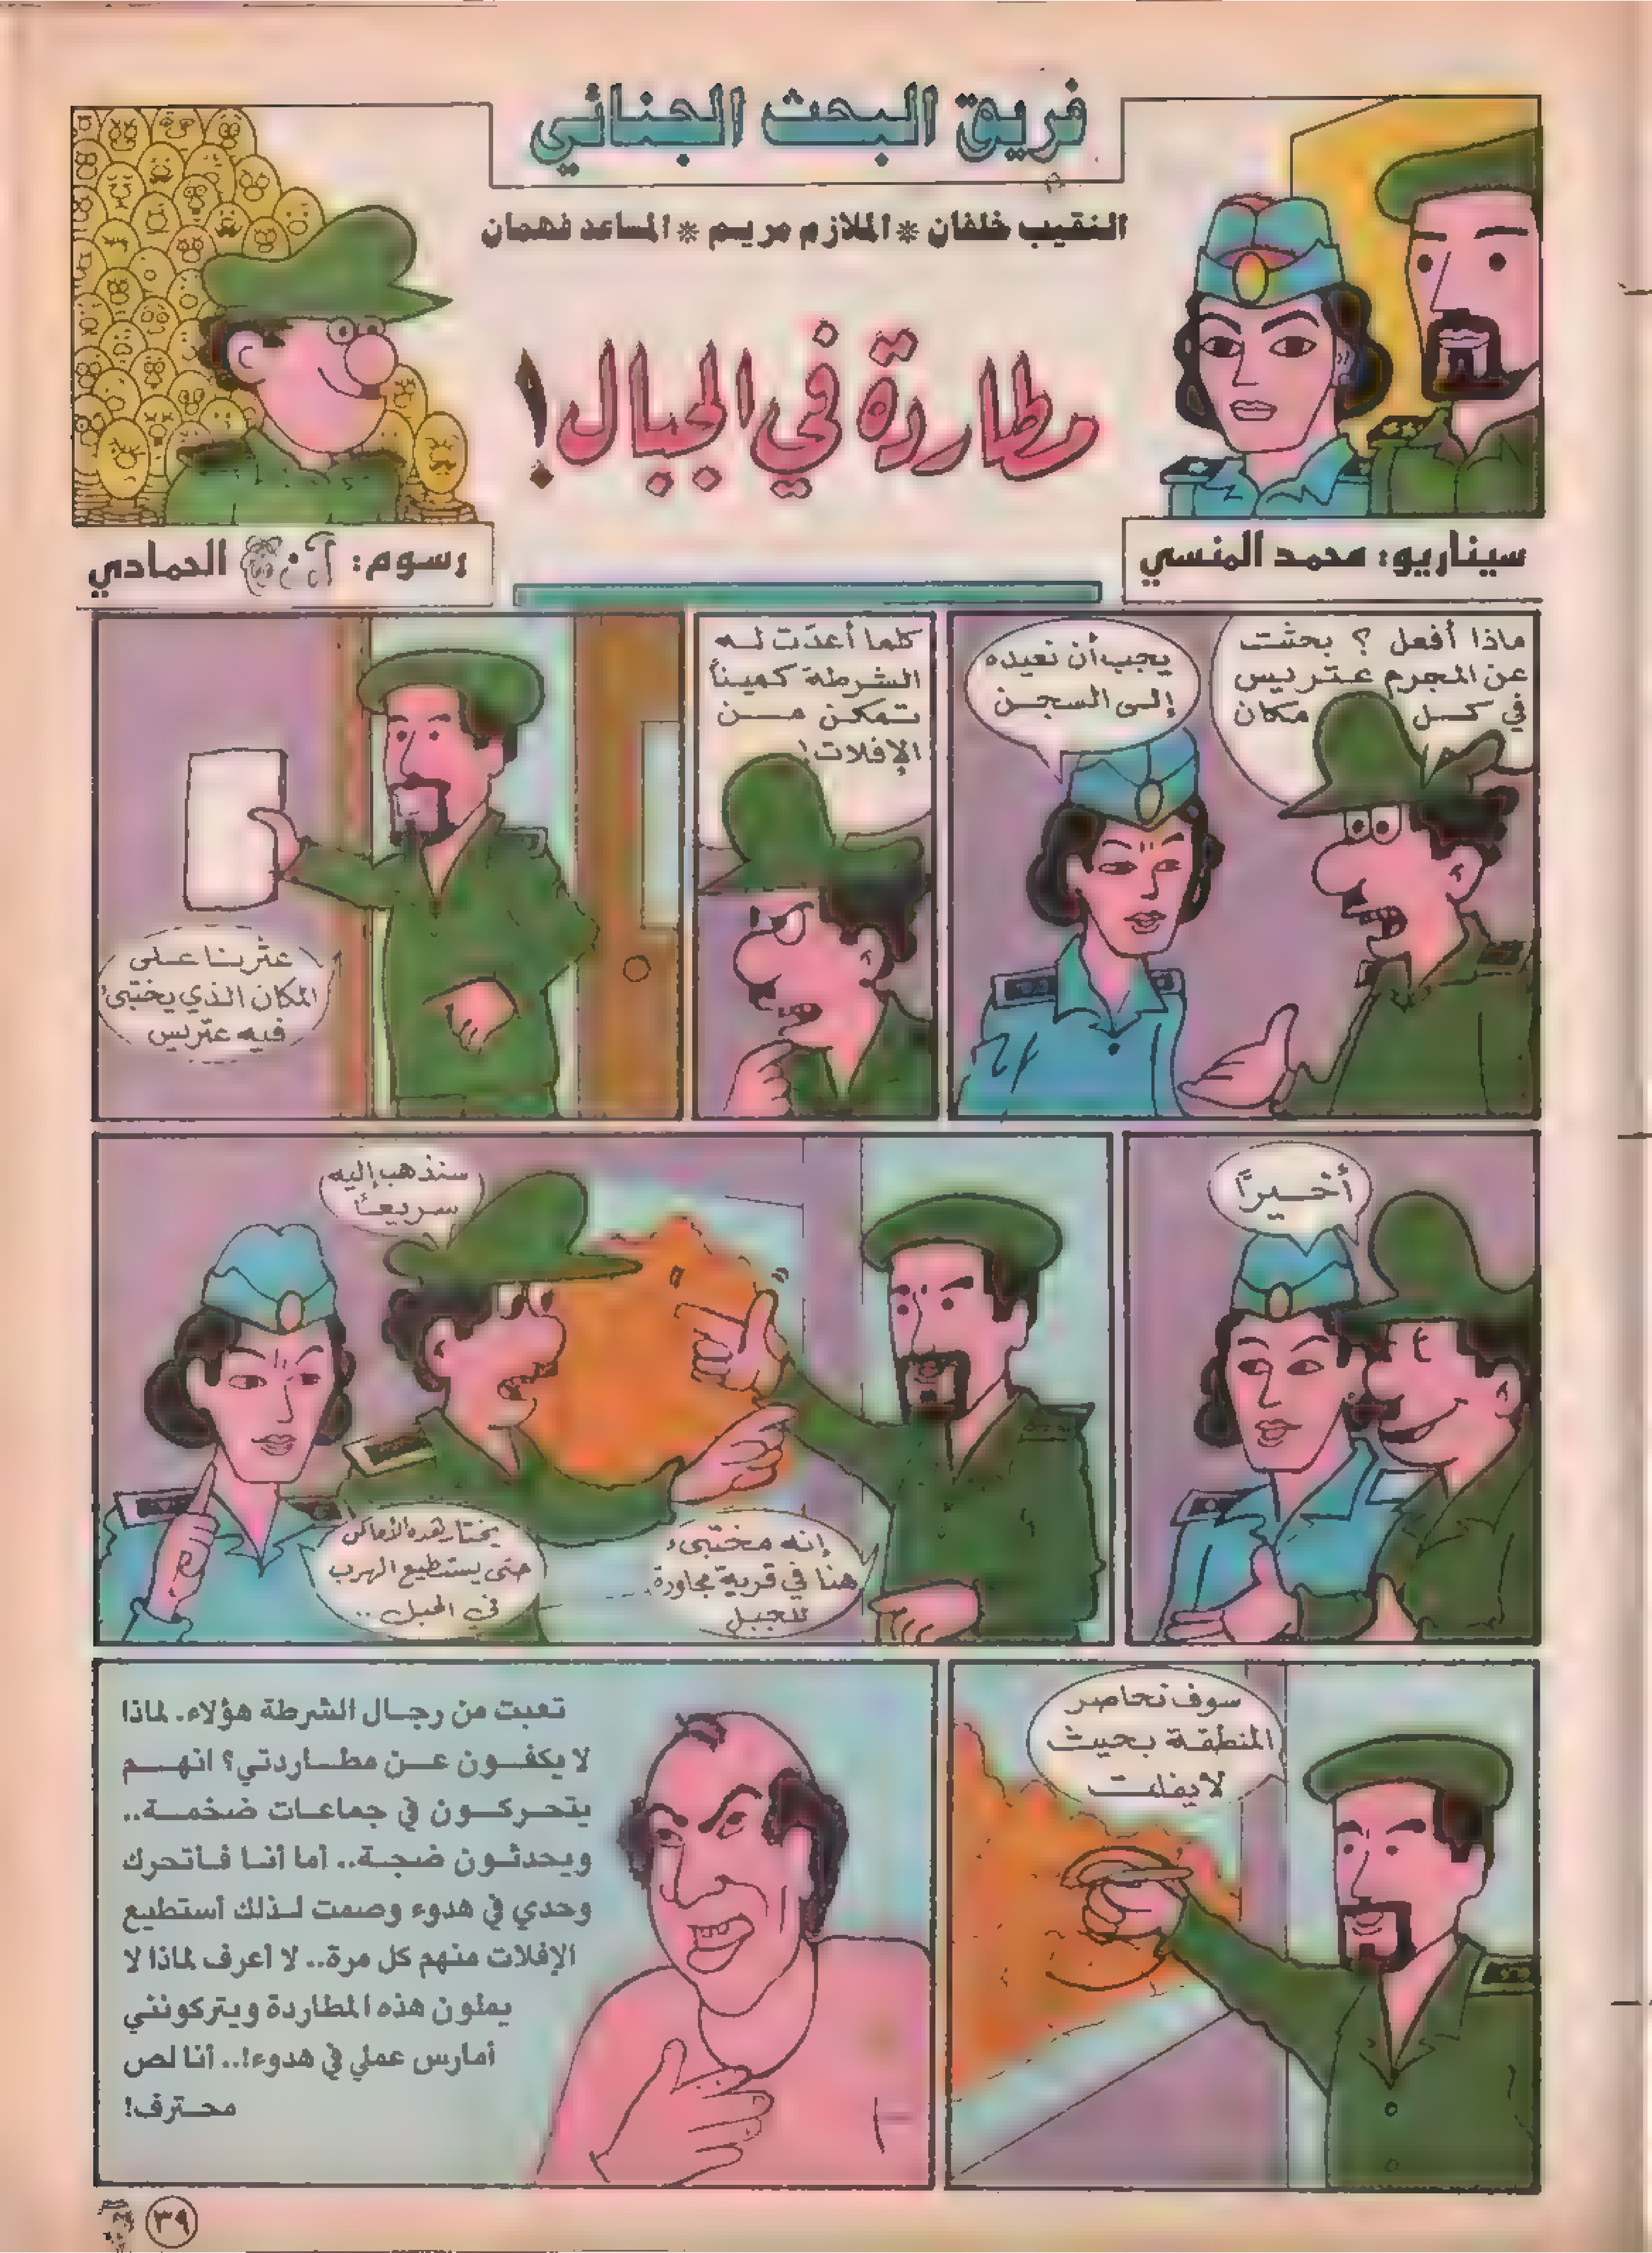 فريق البحث الجنائي
النقيب خلفان * الملازم مريم * المساعد فهمان
مطاردة في الجبال!
سيناريو: محمد المنسي
رسوم: الحمادي
ماذا أفعل ؟ بحثت
عن المجرم عتريس
في كل مكان
يجب أن نعيده
إلى السجن
كلما أعدّت له
الشرطة كميناً
تمكن من
الإفلات!
عثرنا على
المكان الذي يختبئ
فيه عتريس
أخيراً
سنذهب إليه
سريعاً
إنه مختبئ
هنا في قرية مجاورة
للجبل
يختار هذه الأماكن
حتى يستطيع الهرب
في الجبل ..
سوف نحاصر
المنطقة بحيث
لا يفلت
تعبت من رجال الشرطة هؤلاء. لماذا
لا يكفون عن مطاردتي؟ انهم
يتحركون في جماعات ضخمة..
ويحدثون ضجة.. أما أنا فأتحرك
وحدي في هدوء وصمت لذلك أستطيع
الإفلات منهم كل مرة.. لا أعرف لماذا لا
يملون هذه المطاردة ويتركونني
أمارس عملي في هدوء!.. أنا لص
محترف!
٣٩